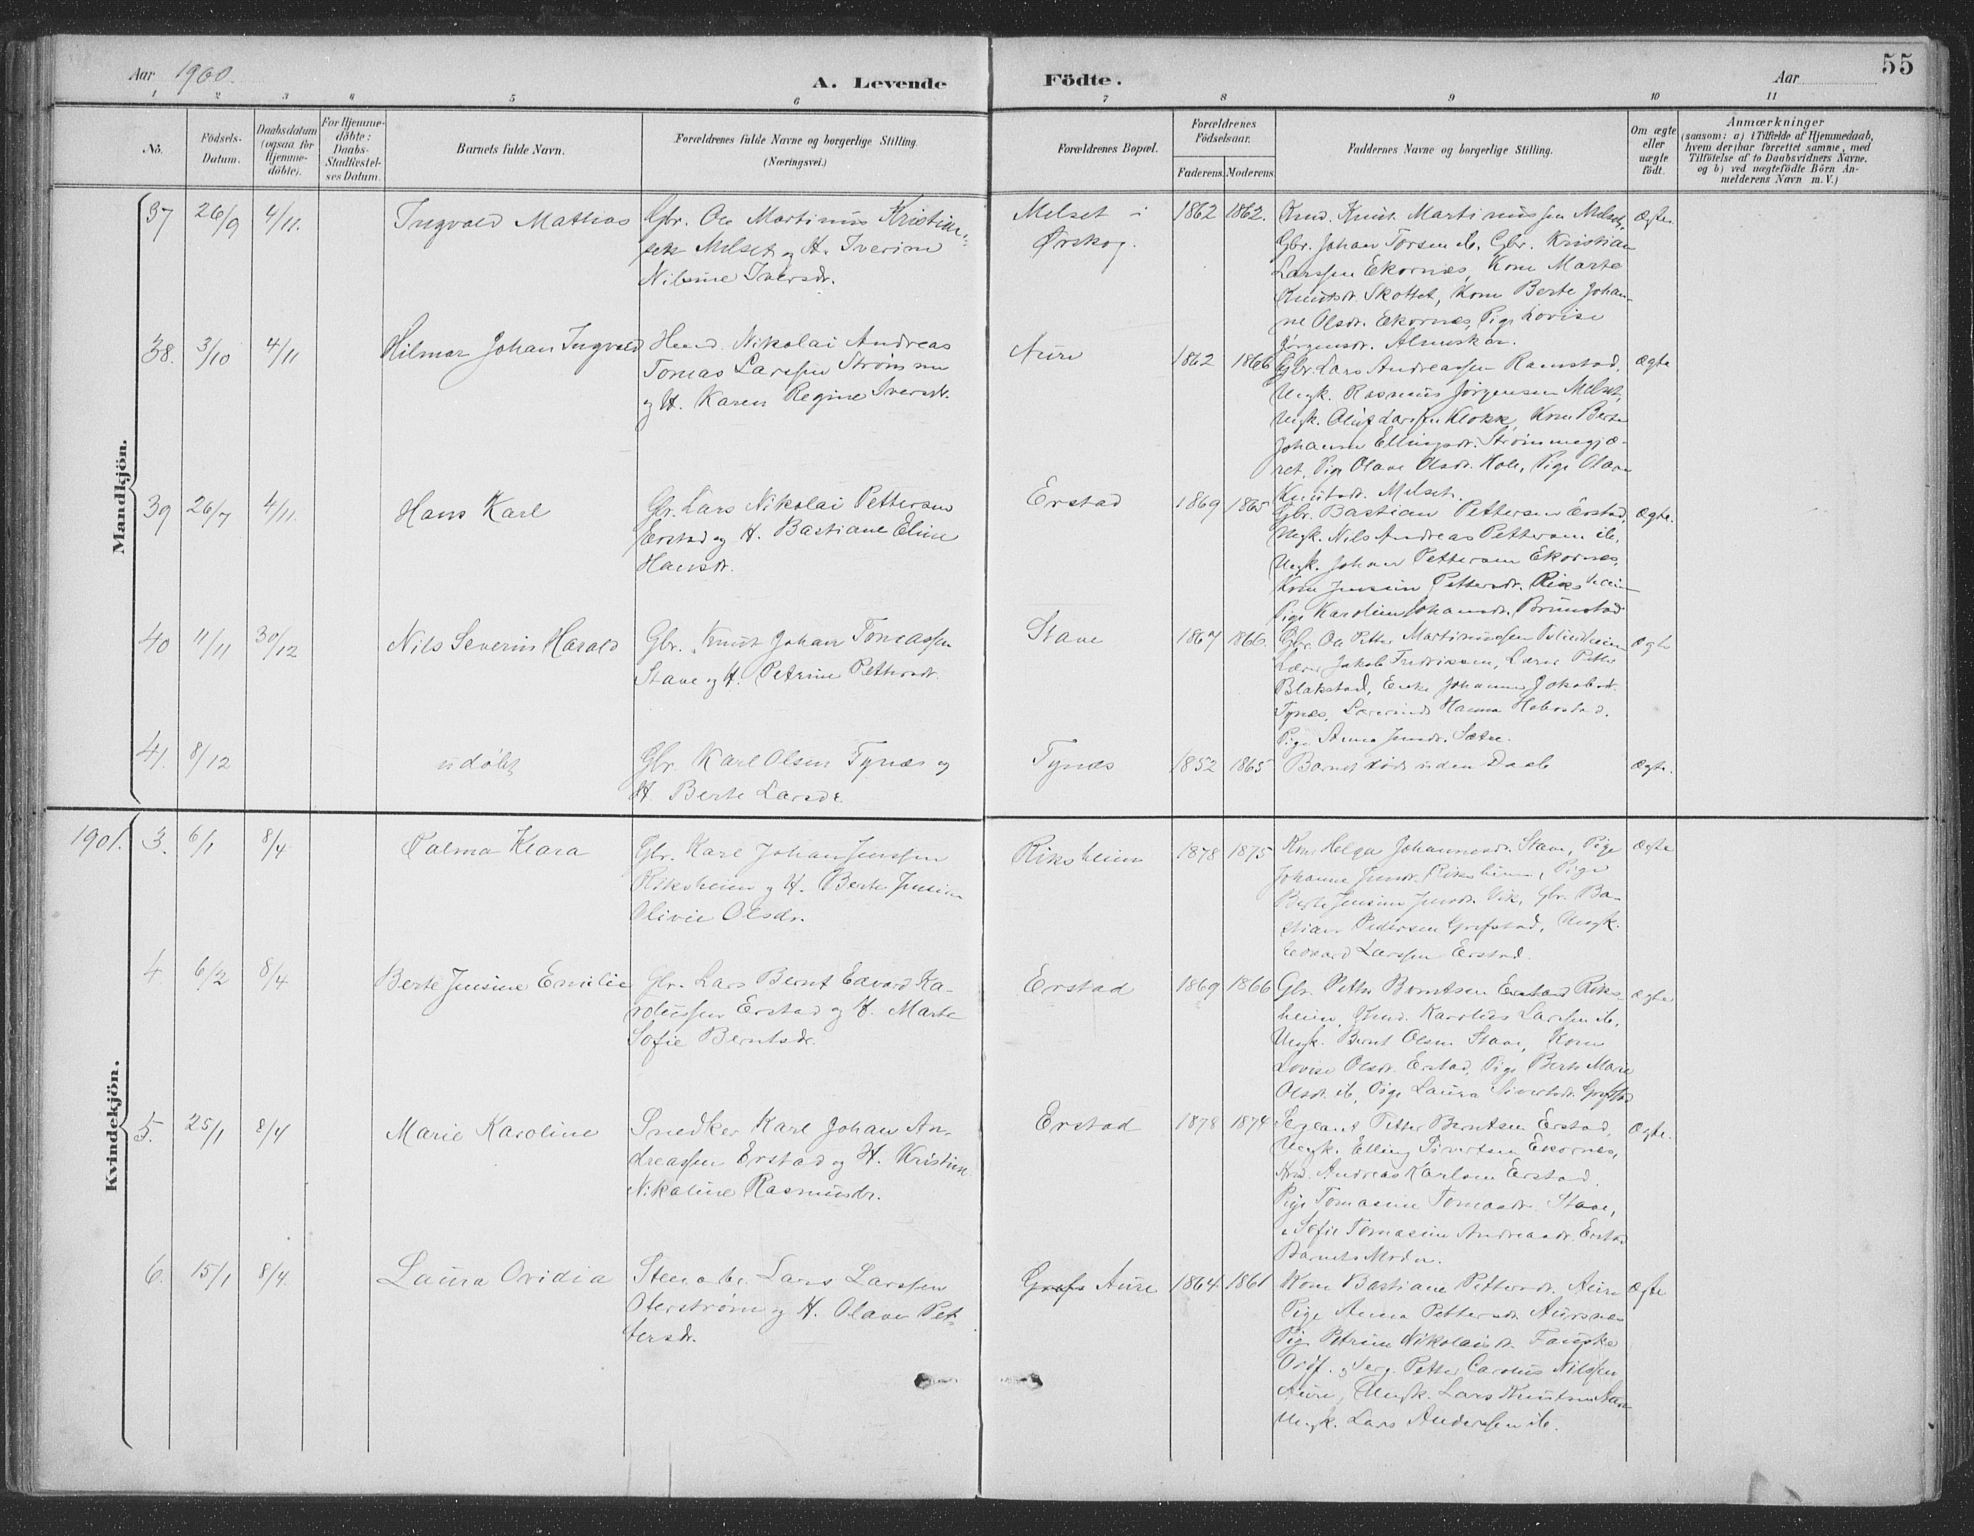 Aar 1900.
A. Levende Födte.
Aar
55
1 2 3 4 5 6 7 8 9 10 11
No.
Födsels-
Datum.
Daabsdatum
(ogsaa for
Hjemme-
döbte).
For Hjemme-
döbte:
Daabs-
Stadfæstel-
ses Datum.
Barnets fulde Navn.
Forældrenes fulde Navne og borgerlige Stilling.
(Næringsvei.)
Forældrenes Bopæl.
Forældrenes
Födselsaar.
Faderens. Moderens.
Faddernes Navne og borgerlige Stilling.
Om ægte
eller
uægte
födt.
Anmærkninger
(saasom: a) i Tilfælde af Hjemmedaab,
hvem der har forrettet samme, med
Tilföielse af to Daabsvidners Navne.
og b) ved uægtefödte Börn An-
melderens Navn m. V.)
Mandkjön.
37 26/9 4/11. Ingvald Mathias
Gbr. Ole Martinus Kristian-
sen Melset og H. Iverine
Nilsine Iversdr.
Melset i
Ørskog.
1862 1862.
Knud Martinussen Melset,
Gbr. Johan Torsen ib. Gbr. Kristian
Larssen Ekornæs, Kone Marte
Knutsdr. Skottet, Kone Berte Johan-
ne Olsdr. Ekornæs, Pige Lovise
Jørgensdr.
Ægte.
38. 3/10 4/11 Hilmar Johan Ingvald
Nikolai Andreas
Tomas Larssen Strømme
og H. Karen Regine Iversdr.
Aure
1862 1866
Gbr. Lars Andreassen Ramstad,
Ungk. Rasmus Jørgensen Melset,
Ungk. Oluf Larssen Klokk, Kone Berte
Johanne Ellingsdr. Strømmegjæ-
ret, Pige Olave Olsdr. Hole, Pige Olave
Knutsdr. Melset.
Ægte
39 26/7 4/11. Hans Karl
Gbr. Lars Nikolai Pettersen
Erstad og H. Bastiane Eline
Hansdr.
Erstad
1869 1865
Gbr. Bastian Pettersen Erstad,
Ungk. Nils Andreas Pettersen ib.
Ungk. Johan Pettersen Ekornæs,
Kone Jensine Pettersdr. Riksheim
Pige Karoline Johansdr. Brunstad
Ægte.
40 11/11 30/12 Nils Severin Harald
Gbr. Knut Johan Tomassen
Stave og H. Petrine Pettersdr.
Stave
1867 1866.
Gbr. Ole Petter Martinussen
Jakob Fredrikssen, Lærer Petter
Blakstad, Enke Johanne Jakobsdr.
Tynæs, Lærerinde Hanna
Pige Anna Jensdr. Sætre.
Ægte
41. 8/12 udøbt
Gbr. Karl Olsen Tynæs og
H. Berte Larsdr.
Tynæs
1852 1865
Barnet døde uden Daab
Ægte.
Kvindekjön.
1901. 3. 6/1 8/4 Palma Klara
Gbr. Karl Johan Jenssen
Riksheim og H. Berte Jensine
Olivie Olsdr.
Riksheim
1878 1875
Kone Helga Johannesdr. Stave, Pige
Johanne Jensdr. Riksheim, Pige
Berte Jensine Jensdr. Vik, Gbr. Ba-
stian Pedersen Grefstad, Ungk.
Edvard Larssen Erstad.
Ægte
4 6/2 8/4 Berte Jensine Emilie
Gbr. Lars Bernt Edvard Ka-
rolussen Erstad og H. Marte
Sofie Berntsdr.
Erstad
1869 1866
Gbr. Petter Berntsen Erstad Riks-
heim, Karolus Larssen ib.,
Ungk. Bernt Olsen Stave, Kone
Lovise Olsdr. Erstad, Pige Berte Marie
Olsdr. ib, Pige Laura Sivertsdr. Grefstad
Ægte
5. 25/1 8/4 Marie Karoline
Snedker Karl Johan An-
dreassen Erstad og H. Kristine
Nikoline Rasmusdr.
Erstad
1878 1874
Sergeant Petter Berntsen Erstad,
Ungk. Elling Sivertsen Ekornæs,
Andreas Karlsen Erstad.
Pige Tomasine Tomasdr. Stave,
Sofie Tomasine Andreasdr. Erstad
Barnets Moder.
Ægte.
6. 15/1 8/4. Laura Ovidia
Stenarb. Lars Larssen
Oterstrøm og H. Olave Pet-
tersdr.
Aure
1864 1861
Kone Bastiane Pettersdr. Aure
Pige Anna Pettersdr. Aursnes
Pige Petrine Nikolaisdr. Fauske
Petter Carolus Nilssen
Aure, Ungk. Lars Knutsen
Ungk. Lars Anderssen ib.
Ægte